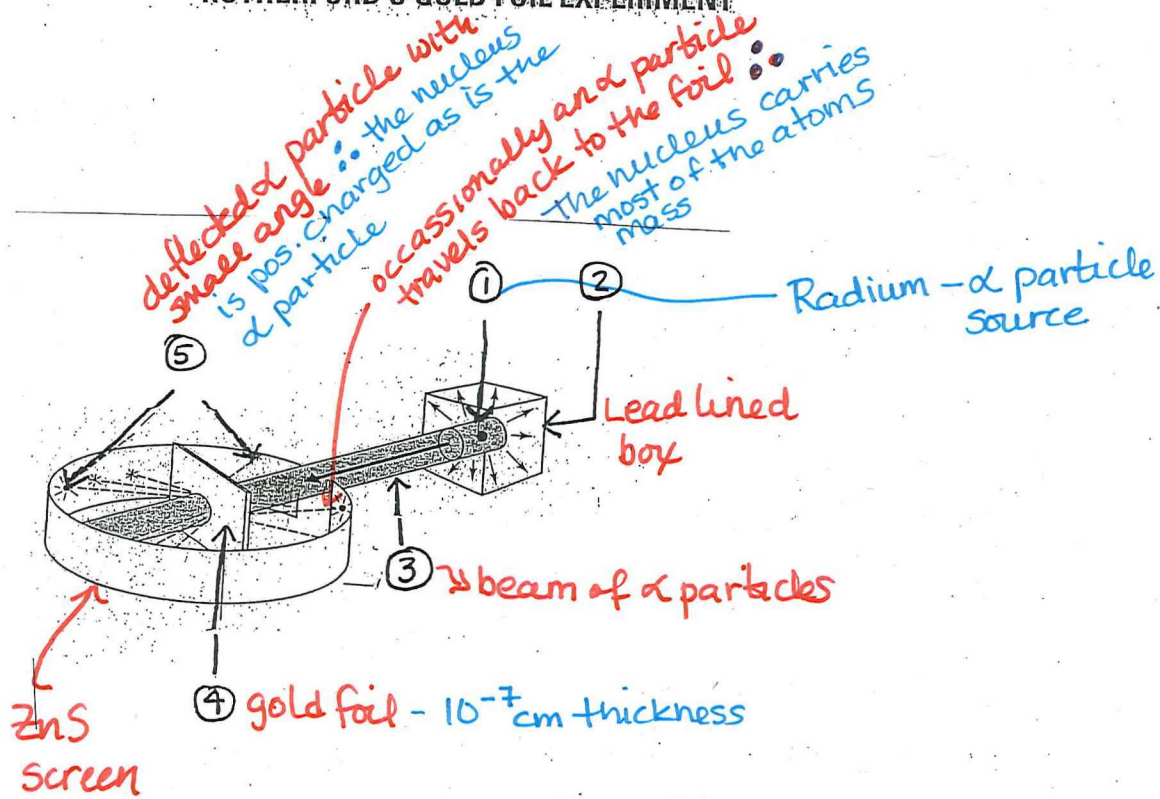 RUTHERFORD'S GOLD FOIL EXPERIMENT
deflected α particle with
small angle ∴ the nucleus
is pos. charged as is the
α particle
occassionally an α particle
travels back to the foil ∴
The nucleus carries
most of the atoms
mass
①
②
Radium - α particle
source
⑤
Lead lined
box
③ beam of α particles
④ gold foil - 10⁻⁷cm thickness
ZnS
screen